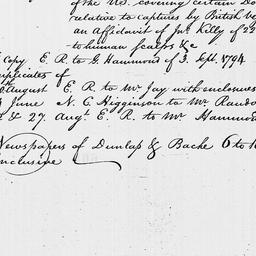 of the U.S. covering certain Do
relative to captures by British ve
an Affidavit of Jnº Kelly of 22
to human scalps &c
Copy E. R. to G. Hammond of 3. Sept. 1794
uplicates of
August E. R. to Mr Jay with enclosures
June N. C. Higginson to Mr Rando
& 27. Augt. E. R. to Mr Hammond
Newspapers of Dunlap & Bache 6 to 1
inclusive